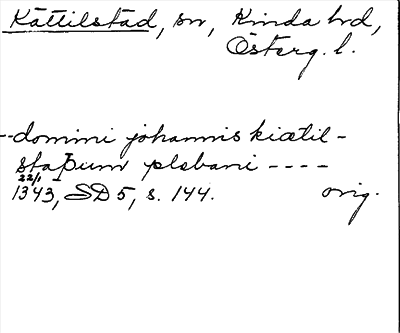 Kättilstad, sn, Kinda hd,
Österg. l.
--domini johannis kiætil-
staþum plebani ----
22/1
1343, SD 5, s. 144. orig.